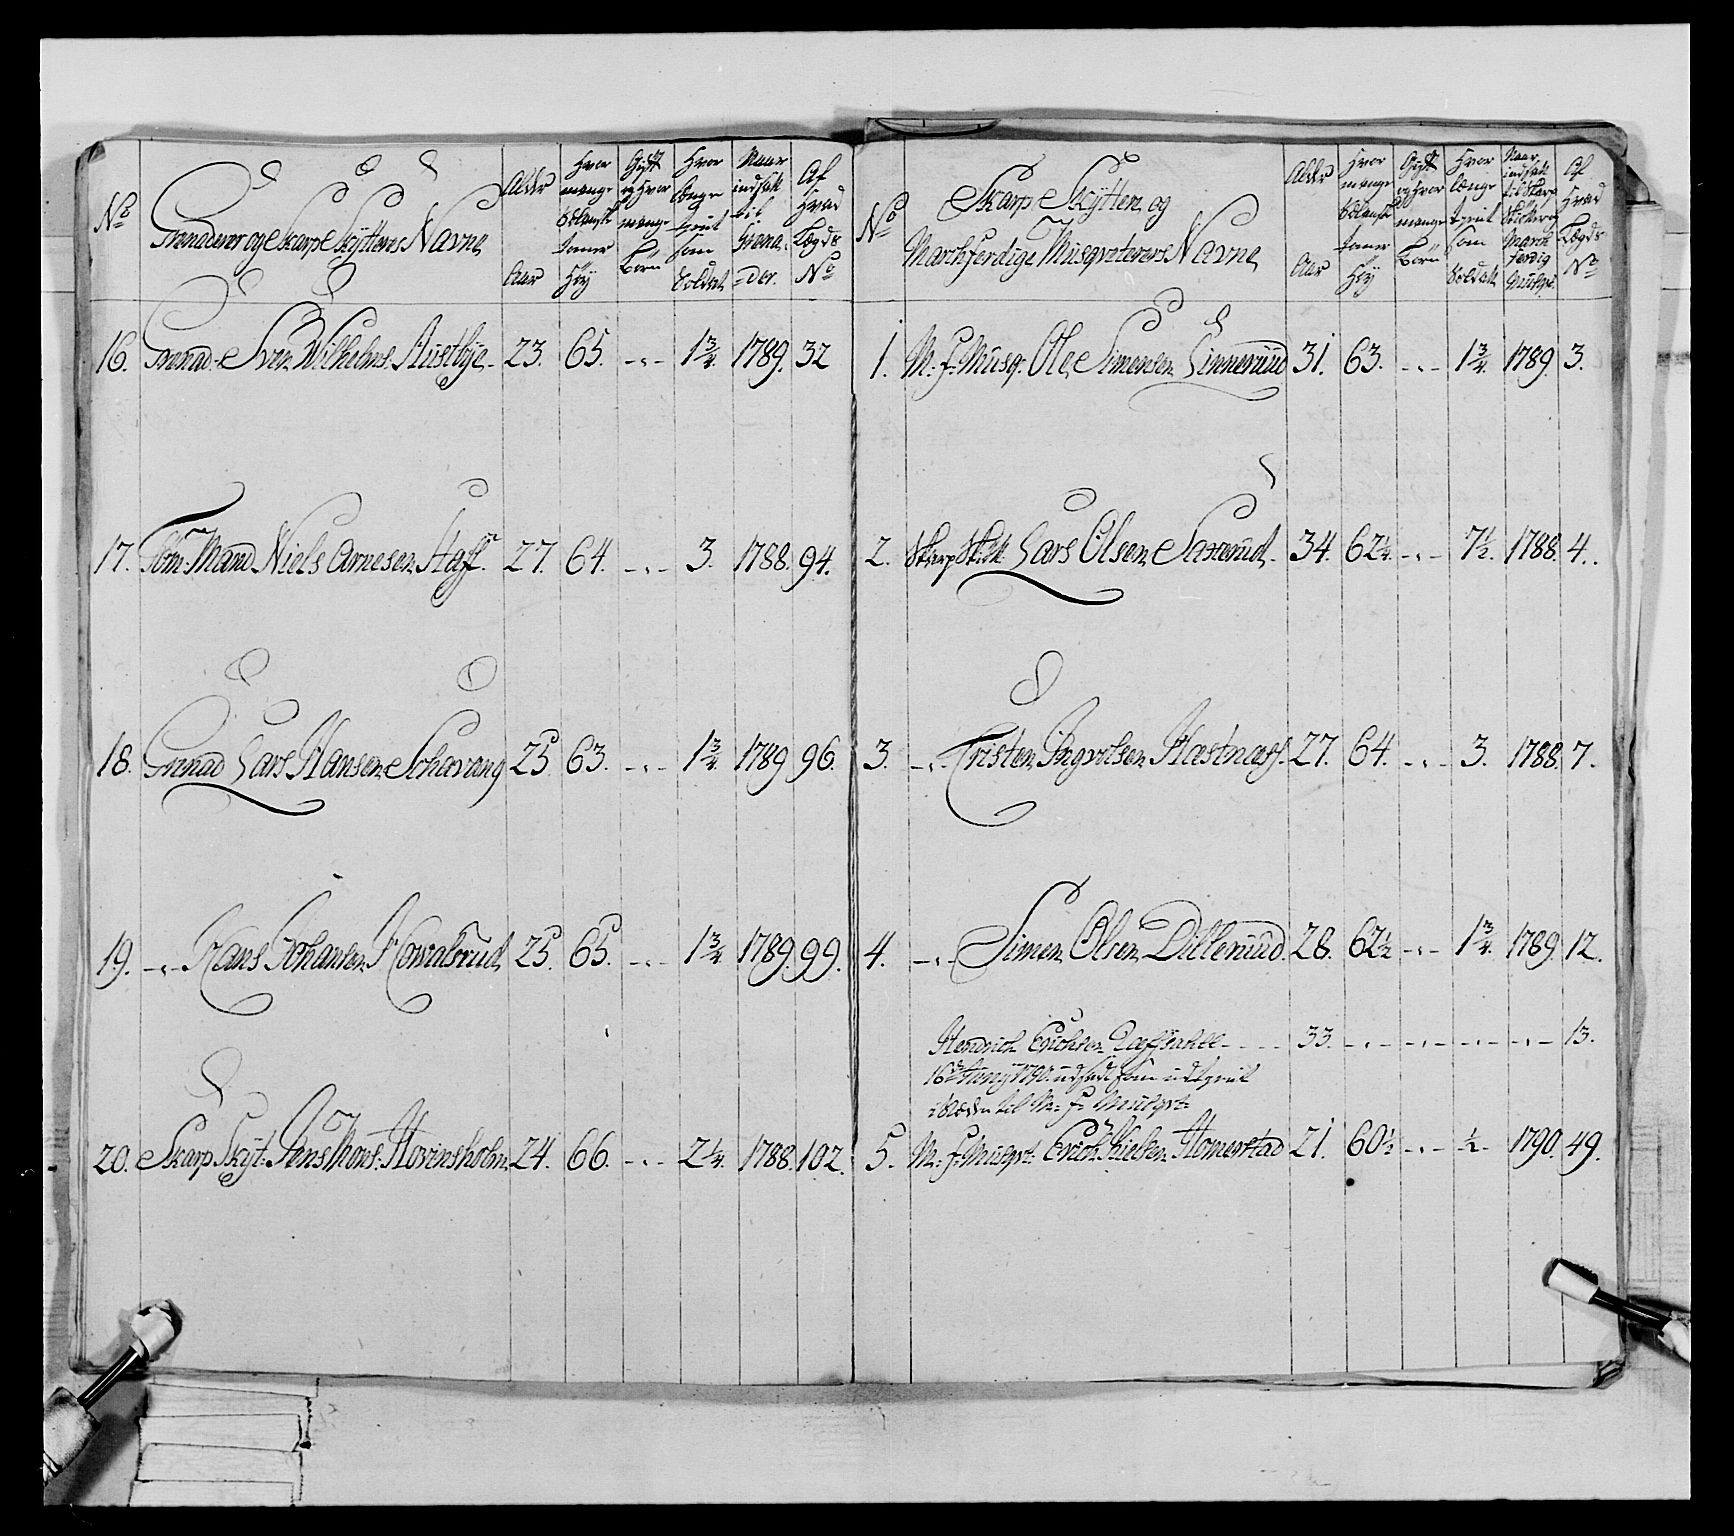 No
Grenaderer og Skarp Skytters Navne
Alder
Aar
Hvor mange Sölensk tomer Höy
Gift og Hvor mange Börn
Hvor længe tient som Soldat
Naar indsatt til Grena=der.
Af Hvad Lægds No
16. Grenad. Sven Wilhelms. Austbye 23. 65. -„- 1 3/4. 1789. 32
17. Töm. Mand Niels Arnesen Haff. 27. 64. -„- 3. 1788. 94.
18. Grenad Lars Hansen Schavang 25 63. -„- 1 3/4. 1789 96.
19. -„- Hans Johansen Howalsrud 25. 65. -„- 1 3/4. 1789. 99.
20. Skarp Skyt. Jens Thors. Hovinsholm 24. 66. -„- 2 1/4. 1788. 102.
No
Skarp Skytter og
Marchferdige Musqveterers Navne
Alder
Aar
Hvor mange Sölensk tomer Höy
Gift og Hvor mange Börn
Hvor længe tient som Soldat
Naar indsatt til Skarp Skötter og March ferdig Musqvt.
Af Hvad Lægds No
1. M: f: Musq. Ole Simensen Linnerud 31. 63. -„- 1 3/4. 1789. 3.
2. Skarp Skött. Lars Olsen Saxerud. 34. 62 1/4. -„- 7 1/2. 1788. 4.
3. -„- Cristen Ingvelsen Hastnæss. 27. 64. -„- 3. 1788. 7.
4. -„- Simen Olsen Dillerud. 28. 62 1/2 -„- 1 3/4. 1789. 12.
Hendrich Erichsen 33. -„- -„- -„- -„- 13.
16de Juny 1790 udsatt som udtient
til M: f: Musqvt:
5. M: f: Musqvt: Erich Nielsen Homerstad 21. 60 1/2 -„- 1/2. 1790. 49.